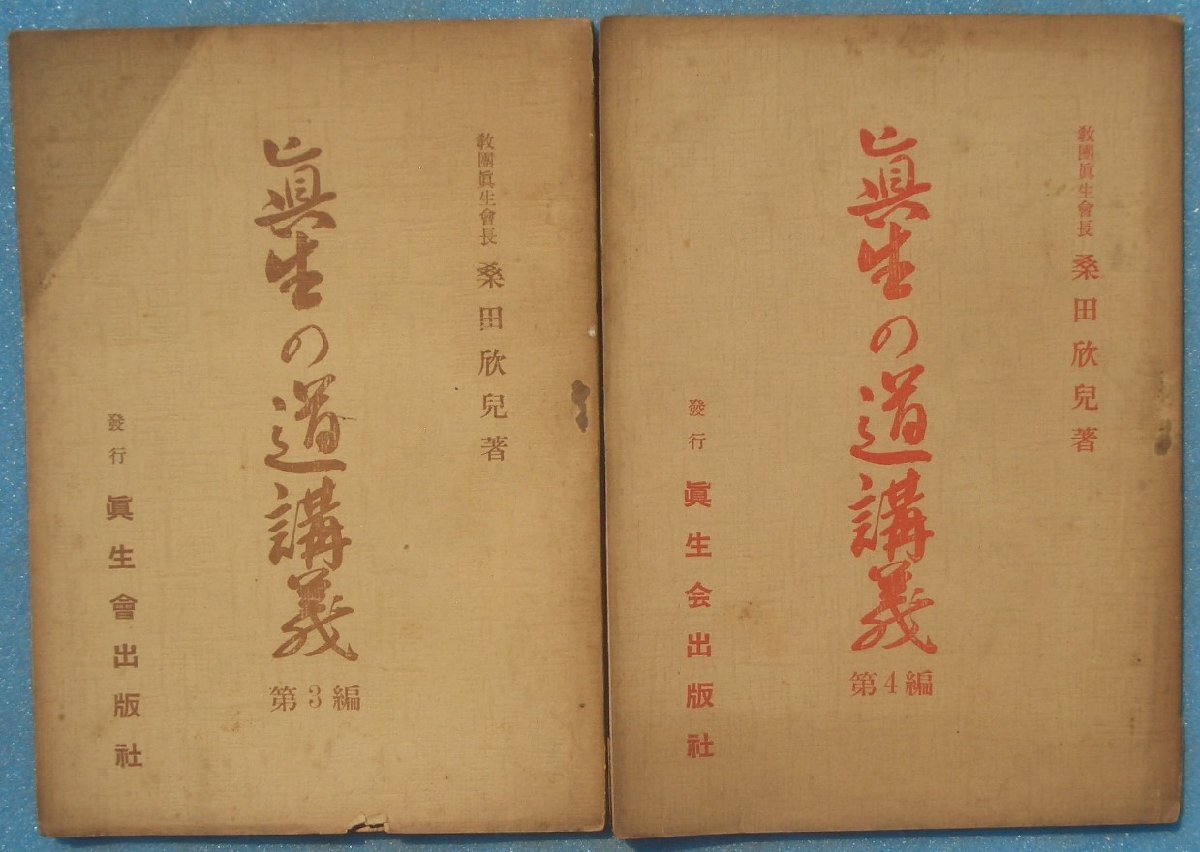 教團眞生會長 桑田欣兒著
眞生の道講義
第3編
發行 眞生會出版社
教團眞生會長 桑田欣兒著
眞生の道講義
第4編
發行 眞生会出版社